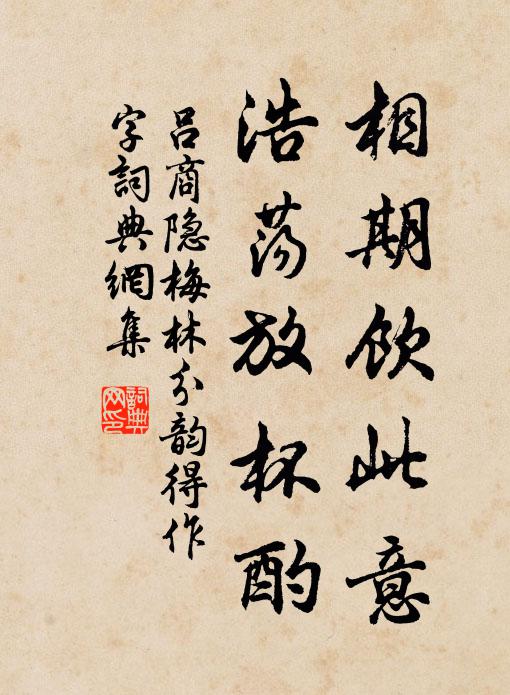 相期饮此意
浩荡放杯酌
吕商隐梅林分韵得作
字詞典網集
詞典
网印